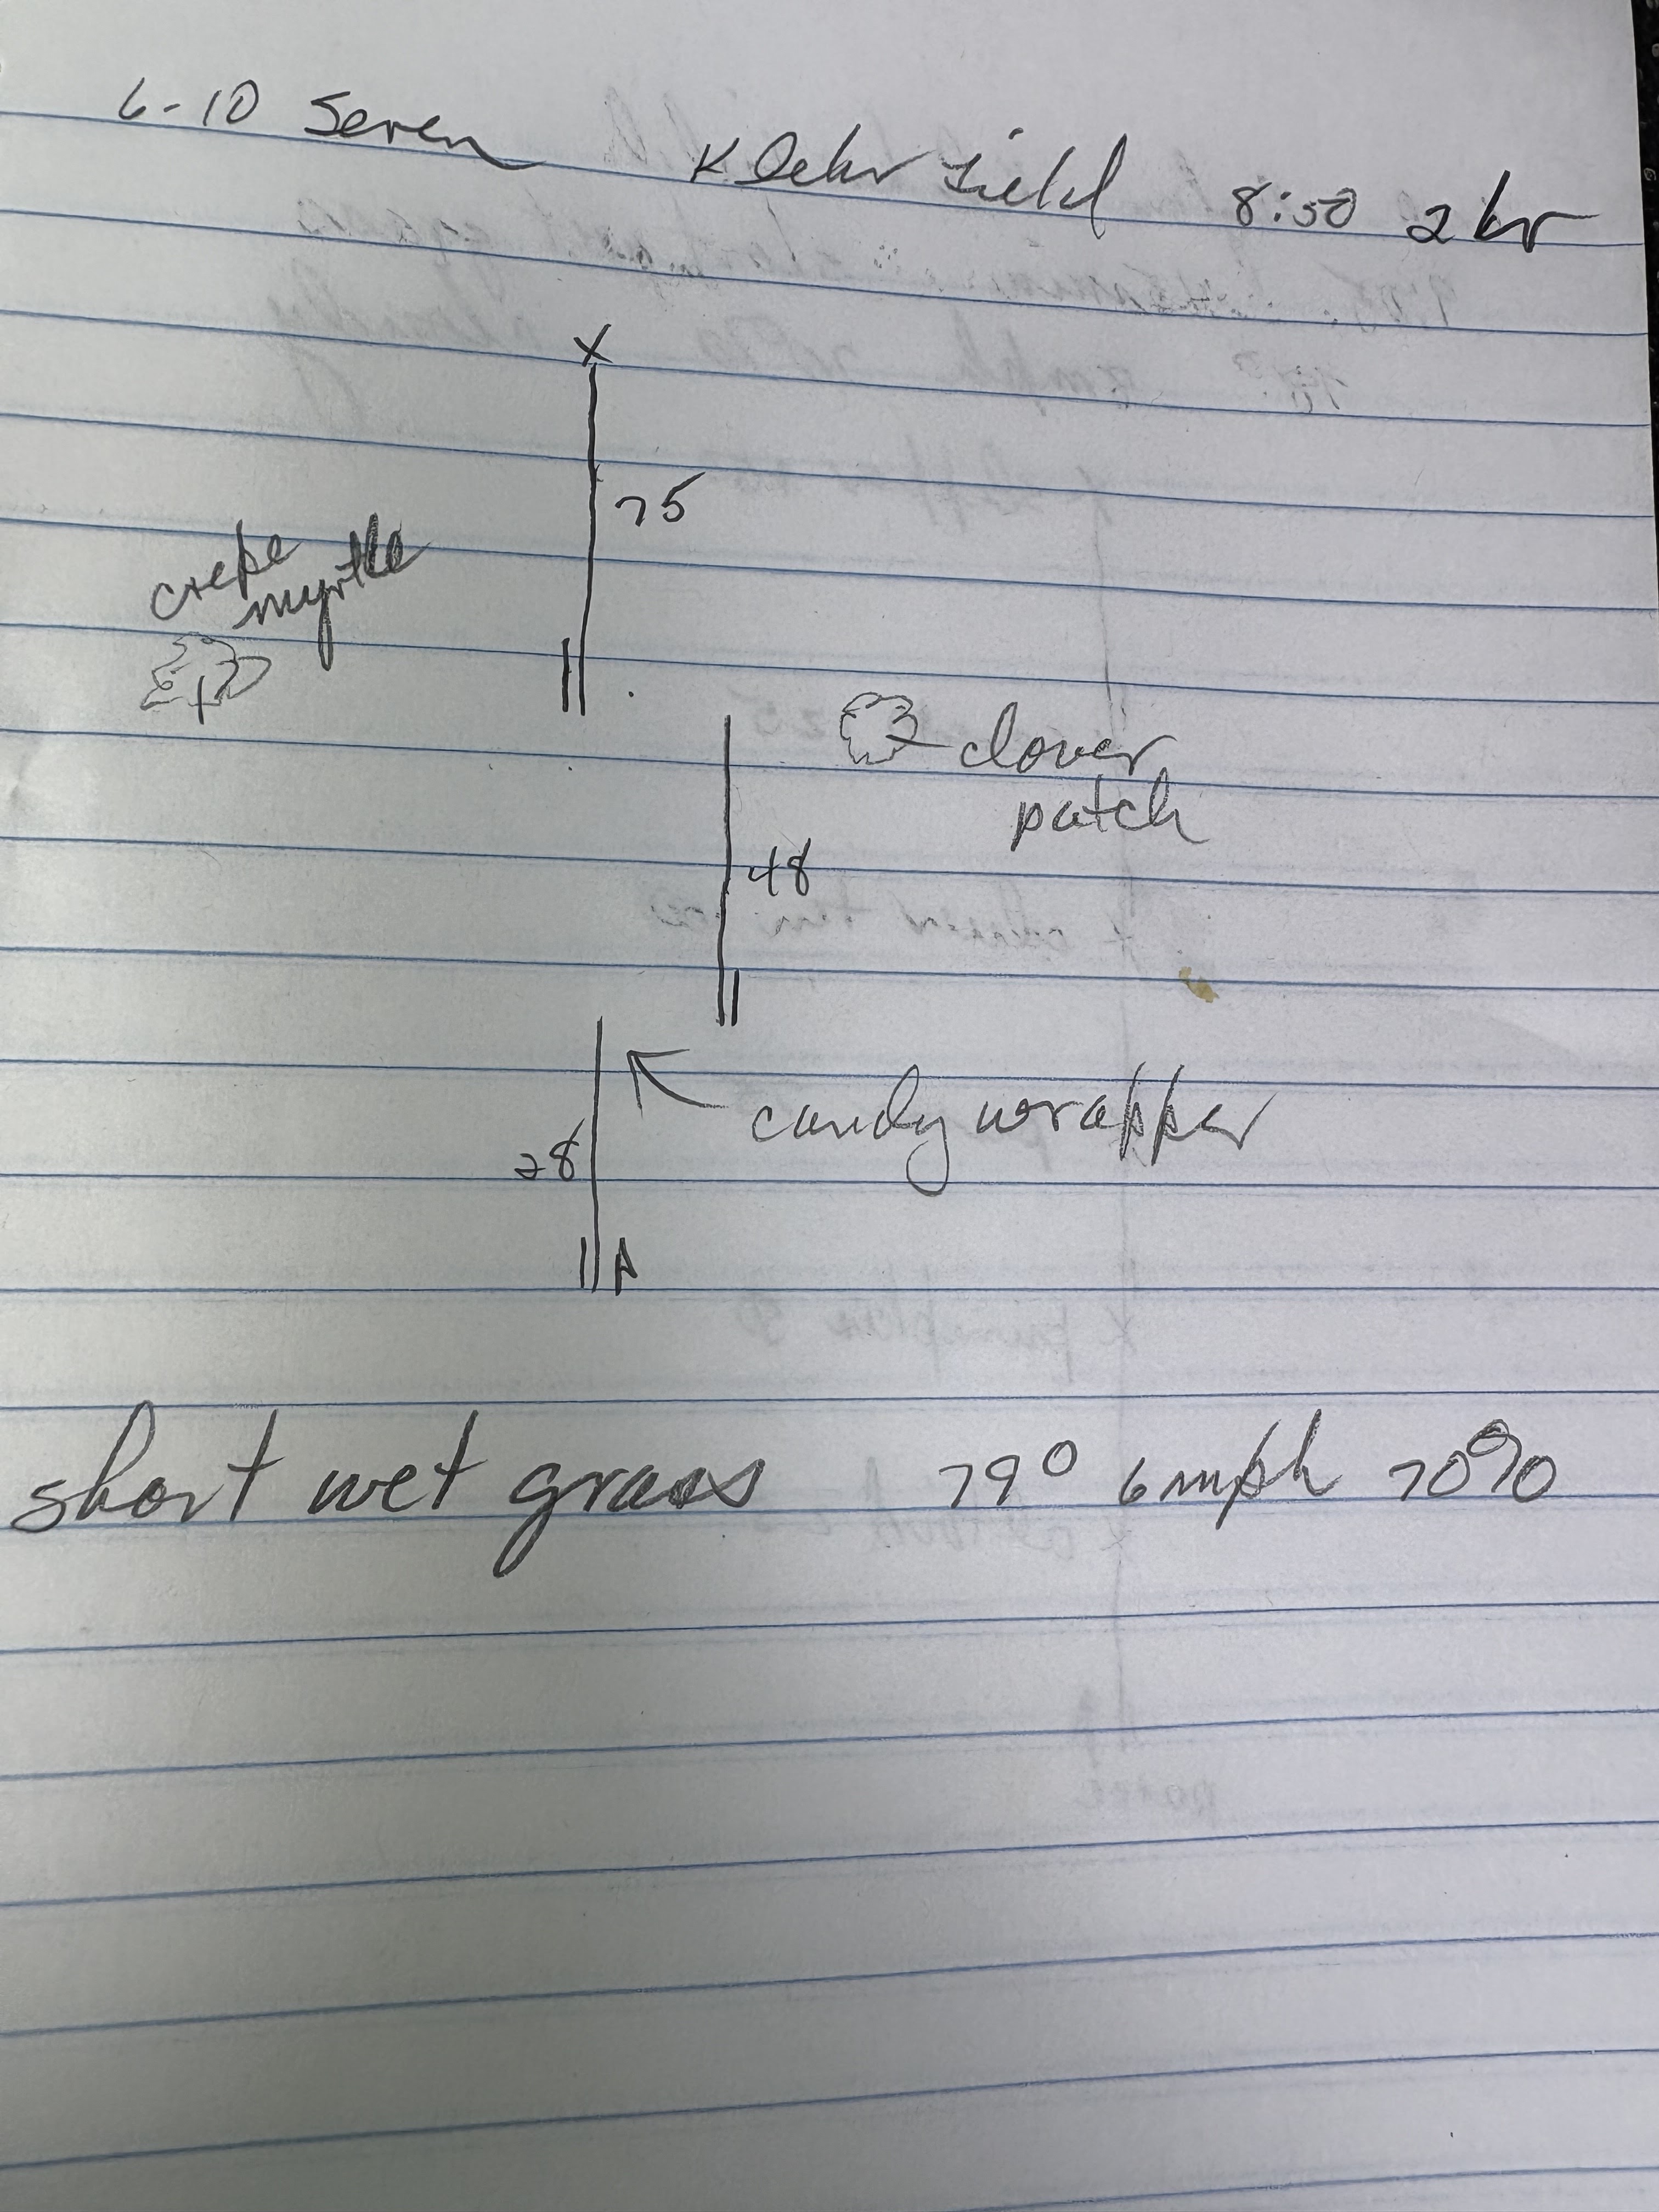 6-10 Seven Klehr Field 8:50 2 hr
X
75
crepe
myrtle
clover
patch
48
candy wrapper
28
short wet grass 79° 6mph 70%